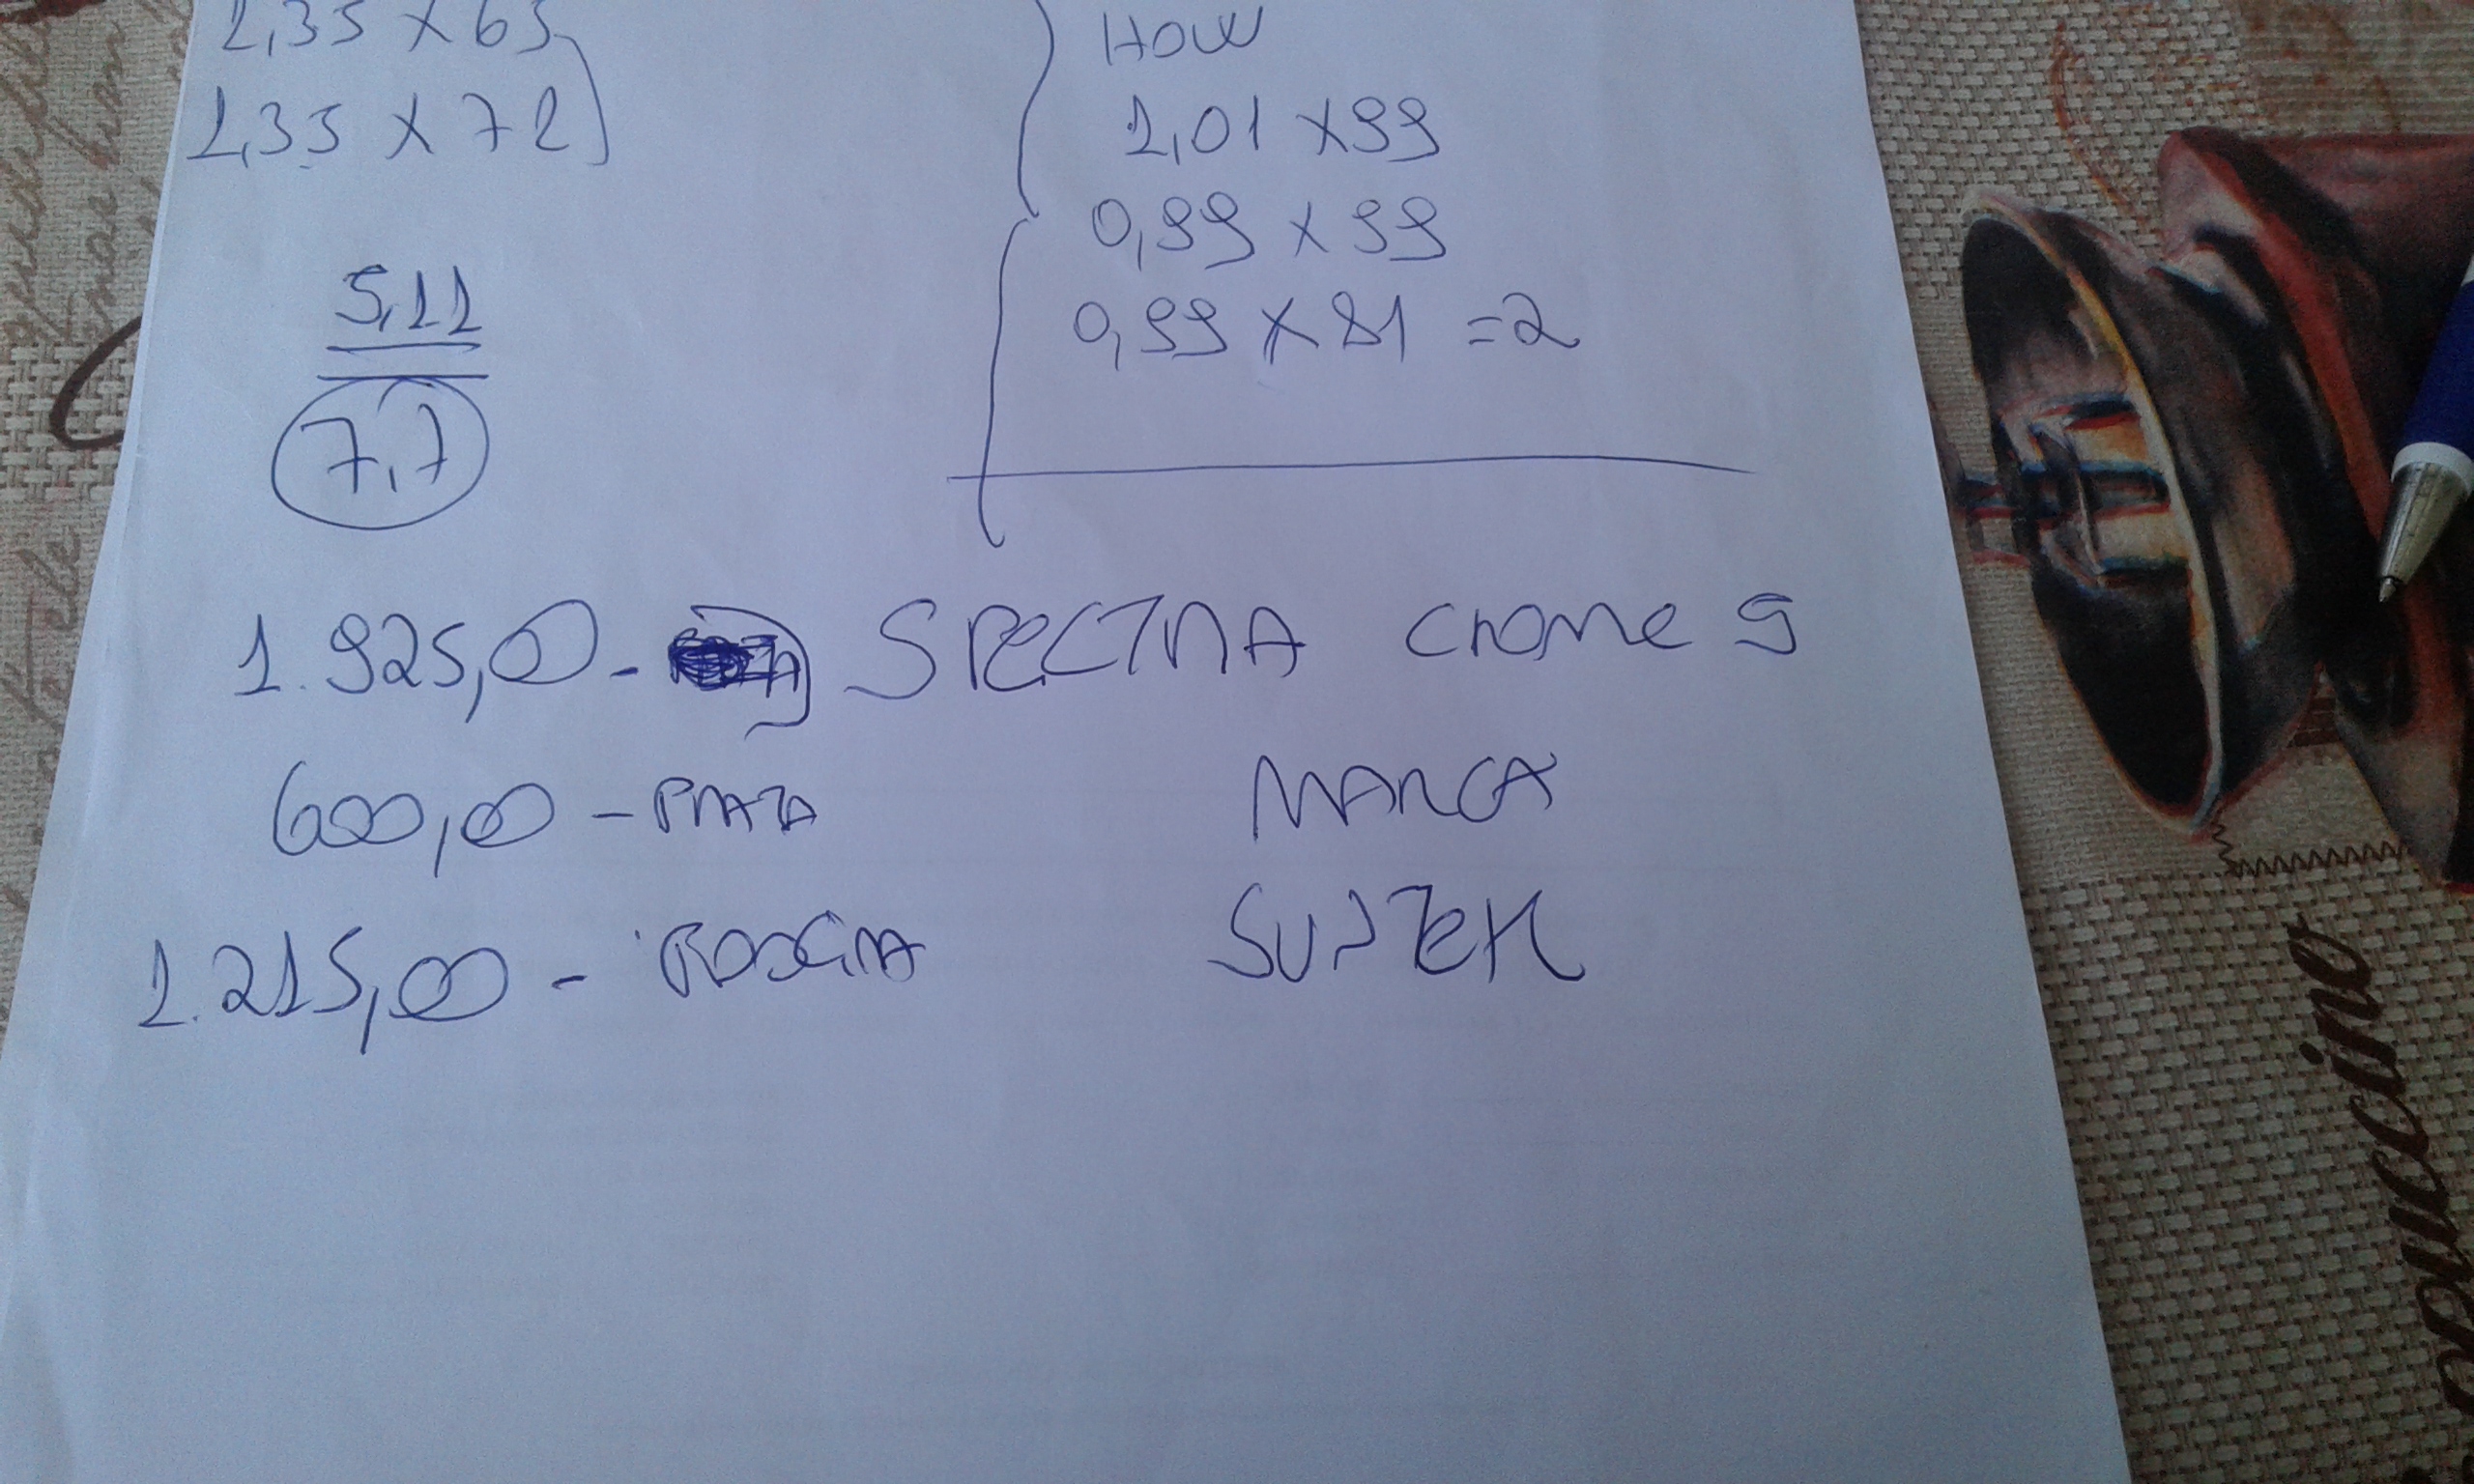 2,35 X 65
2,35 X 72
5,11
7,7
HOW
1,01 X 99
0,99 X 99
0,99 X 81 = 2
1.925,00 - SPECTRA CROME 9
600,00 - PRATA
MARCA
1.215,00 -
SUVTEK
ppuccino